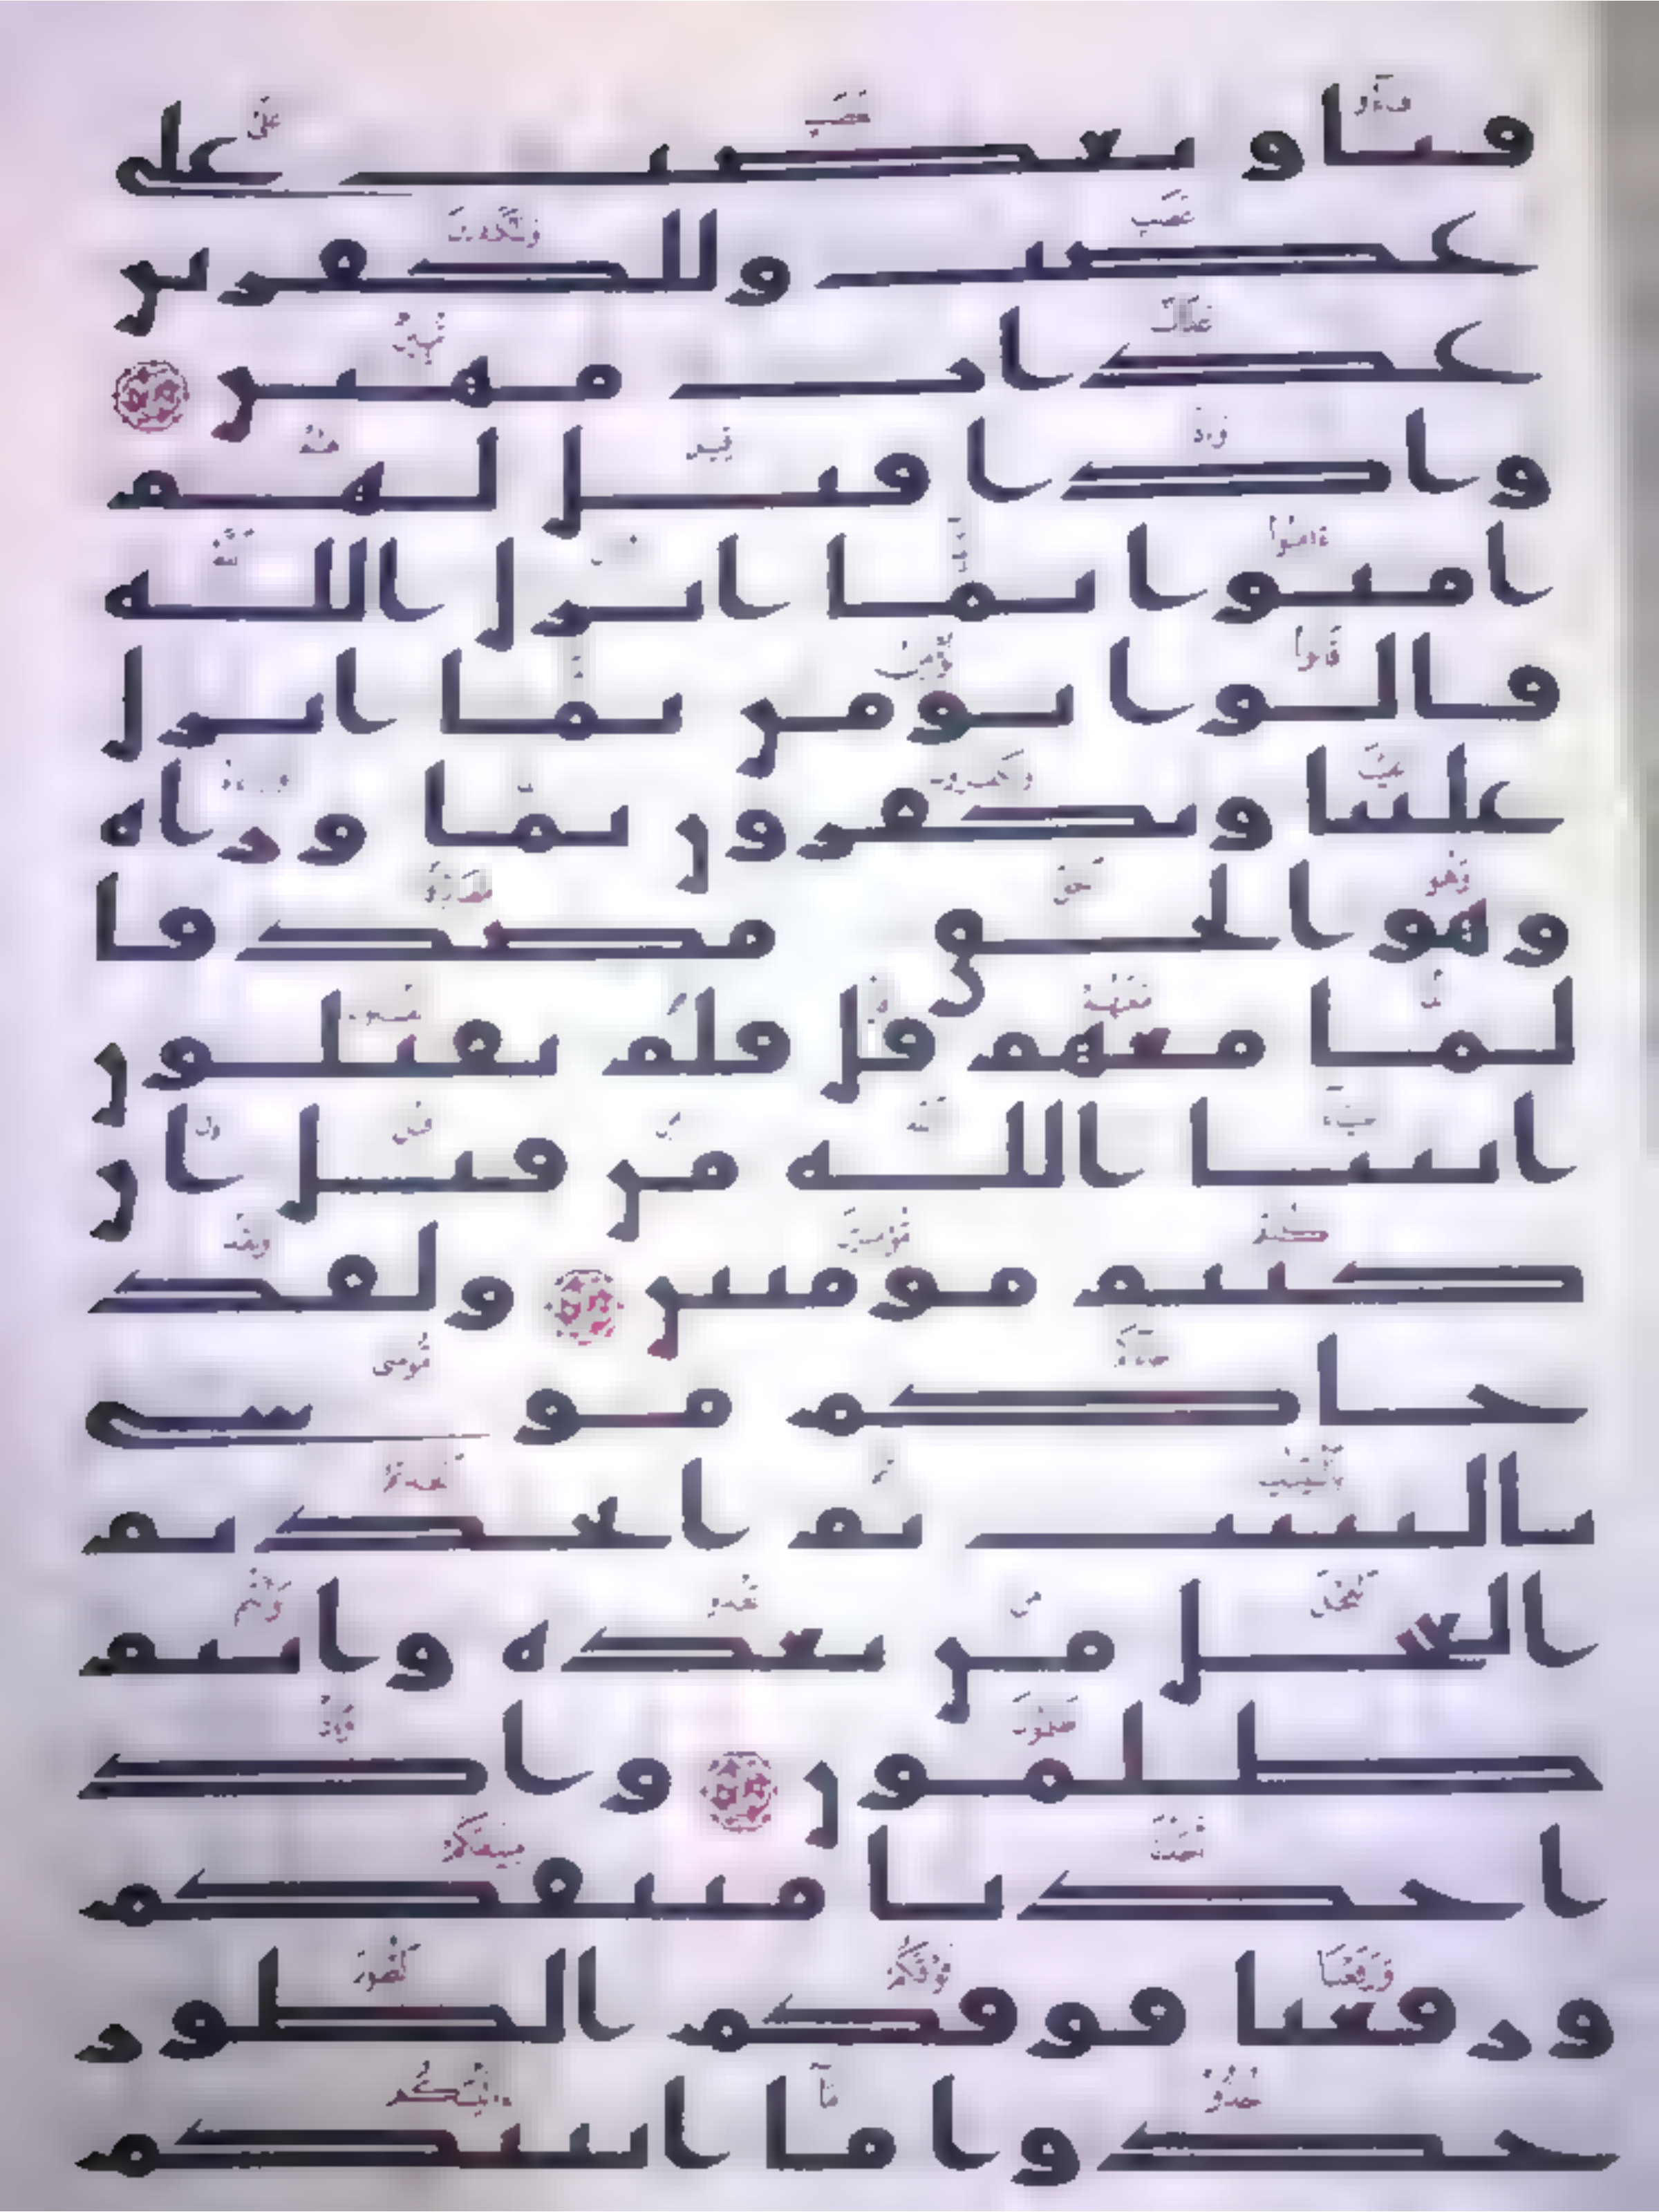 فباو بغضب على
غضب وللكفرين
عذاب مهين
واذا قيل لهم
امنوا بما انزل الله
قالوا نومن بما انزل
علينا ويكفرون بما وراه
وهو الحق مصدقا
لما معهم قل فلم تقتلون
انبيا الله من قبل ان
كنتم مومنين ولقد
جاكم موسى
بالبينت ثم اتخذتم
العجل من بعده وانتم
ظلمون واذ
اخذنا ميثقكم
ورفعنا فوقكم الطور
خذوا ما اتينكم